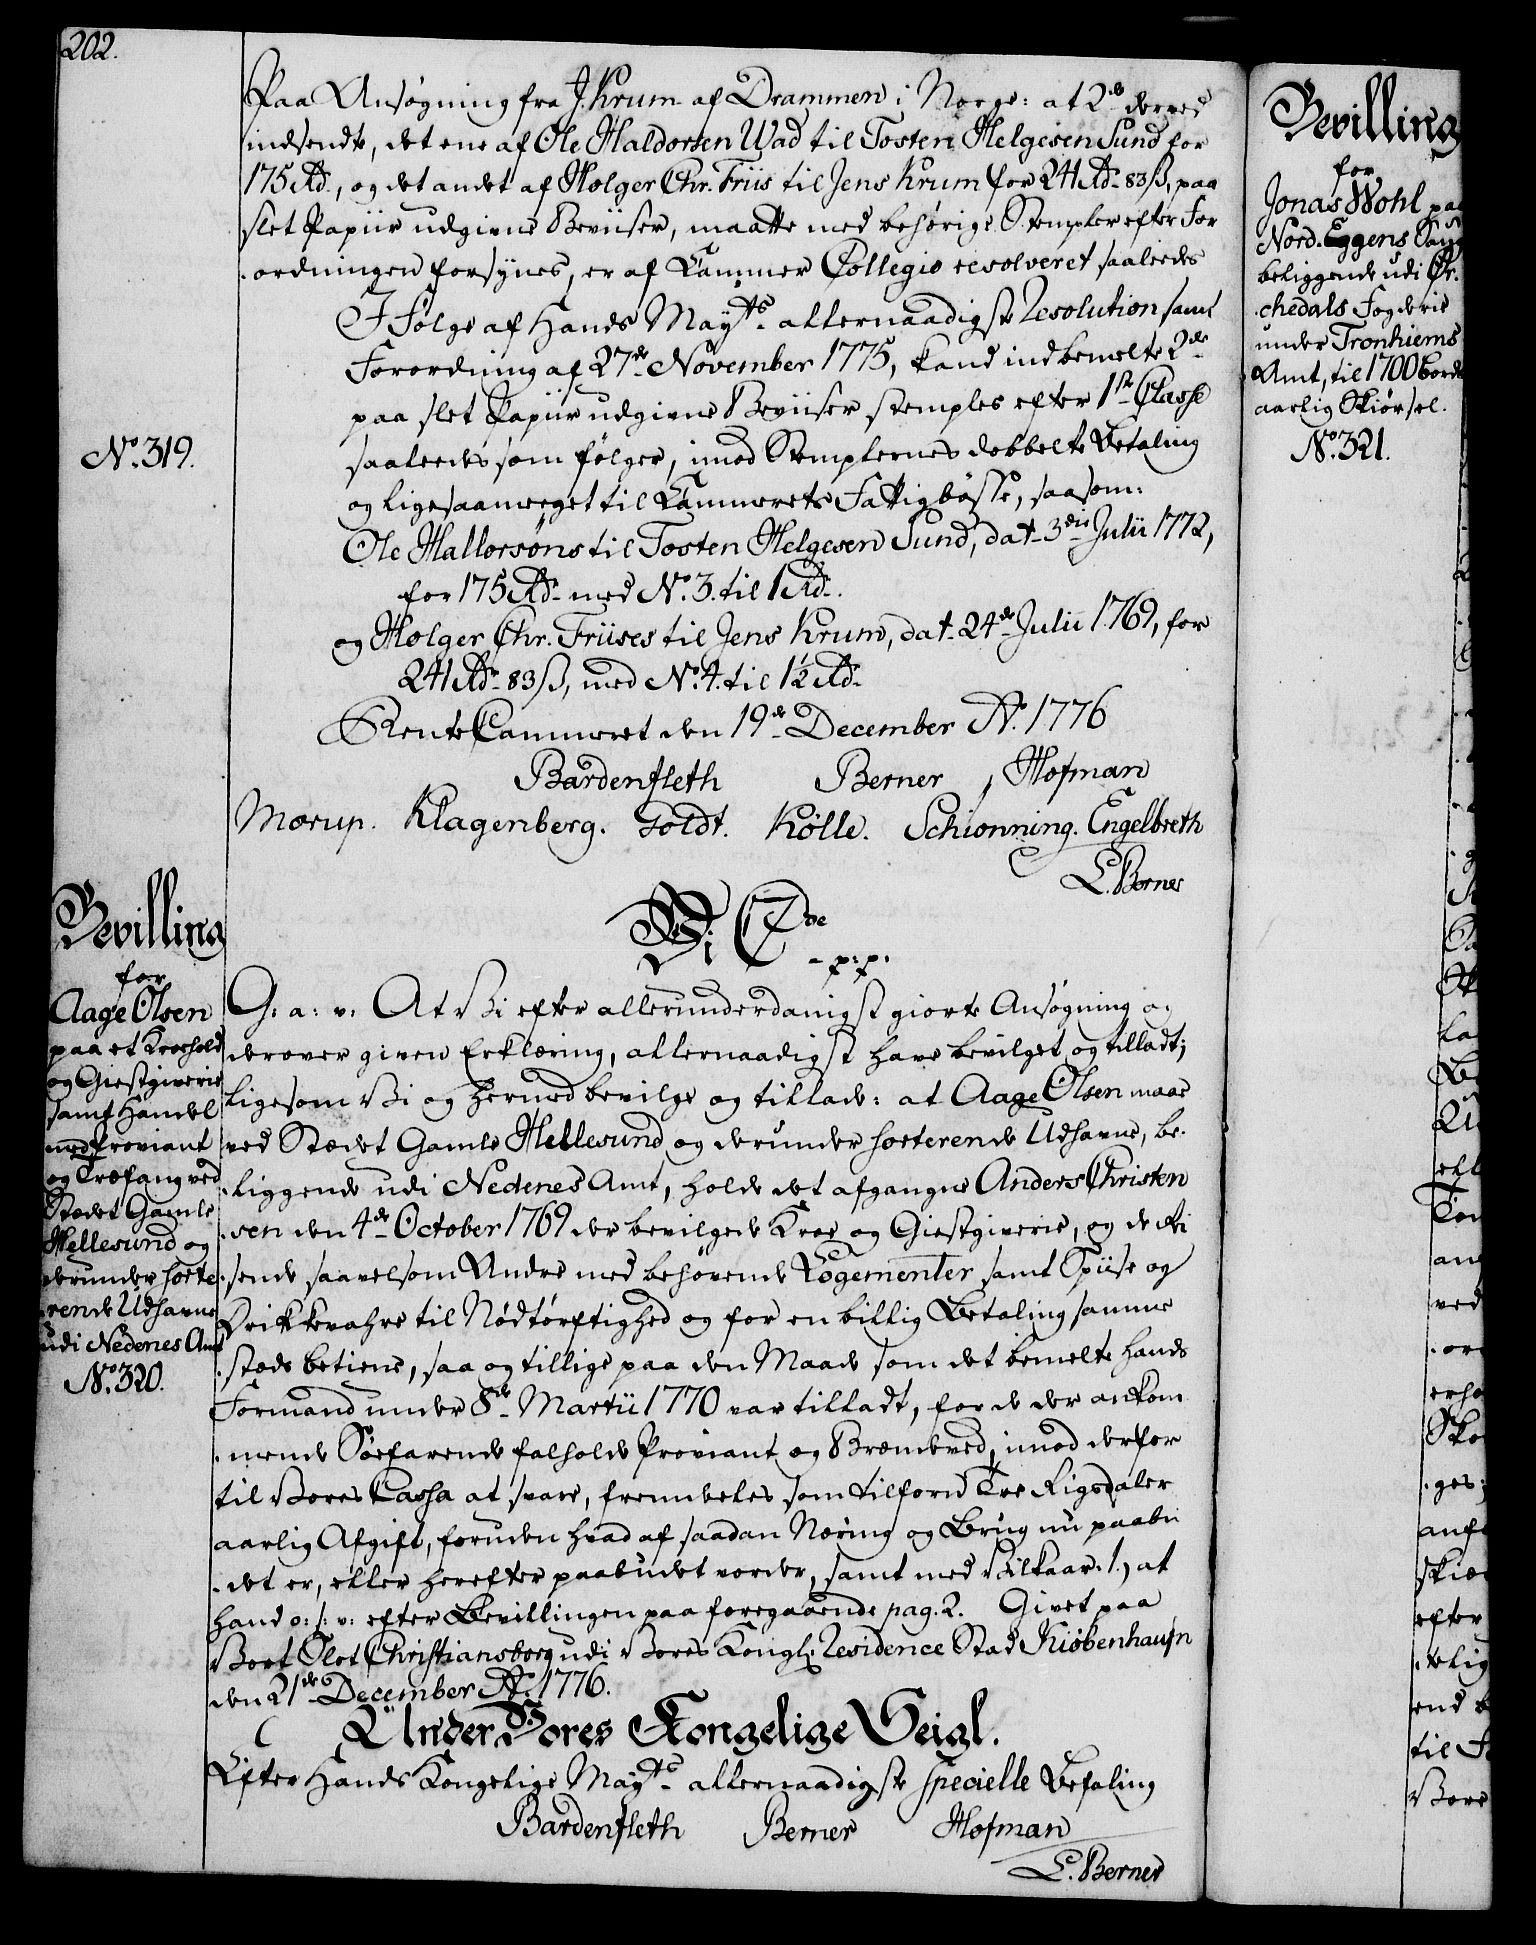 202.
Paa Ansøgning fra J. Krum af Drammen i Norge: at 2de derved
indsendte, det ene af Ole Haldorsen Wad til Tosten Helgesen Sund for
175 Rd., og det andet af Holger Chr. Friis til Jens Krum for 241 Rd. 83 ß, paa
slet Papiir udgivne Beviiser, maatte med behørige Stempler efter For
ordningen forsynes, er af Cammer Collegio resolveret saaleedes
No. 319.
I Følge af Hands Mayts. allernaadigste Resolution samt
Forordning af 27de November 1775, kand indbemelte 2de
paa slet Papiir udgivne Beviiser stemples efter 1ste Classe
saaleedes som følger, imod Stemplernes dobbelte Betaling
og ligesaameget til Cammerets Fattigbøsse, saasom:
Ole Hallorsøns til Tosten Helgesen Sund, dat. 3die Julii 1772,
for 175 Rdr. med No. 3. til 1 Rd.
og Holger Chr. Friises til Jens Krum, dat. 24de Julii 1769, for
241 Rdr. 83 ß, med No. 4. til 1½ Rd.
RenteCammeret den 19de December Ao. 1776
Bardenfleth Berner Hofman
Morup. Klagenberg. Holdt. Kölle. Schionning. Engelbreth
L. Berner
Bevilling
for
Aage Olsen
paa et Kroehold
og Giestgiverie
samt Handel
med Proviant
og Træfang ved
Stædet Gamle
Hellesund og
derunder sorte-
rende Udhavne
udi Nedenes Amt
No. 320.
Vi C 7de
- p: p.
G: a: v: At Vi efter allerunderdanigst giorte Ansøgning og
derover given Erklæring, allernaadigst have bevilget og tilladt;
ligesom Vi og hermed bevilge og tillade: at Aage Olsen maae
ved Stædet Gamle Hellesund og derunder sorterende Udhavne, be-
liggende udi Nedenes Amt, holde det afgangne Anders Christen
sen den 4de October 1769 der bevilgede Kroe og Giestgiverie, og de Rei
sende saavelsom Andre med behøvende Logementer samt Spiise og
Drikkevahre til Nødtørftighed og for en billig Betaling samme
stæds betiene, saa og tillige paa den Maade som det bemelte hands
Formand under 8de Martii 1770 var tilladt, for de der ankom
mende Søefarende falholde Proviant og Brændeved, imod derfor
til Vores Cassa at svare, fremdeles som tilforn Tre Rigsdaler
aarlig Afgift, foruden hvad af saadan Næring og Brug nu paabu
det er, eller herefter paabudet vorder, samt med Vilkaar: 1., at
hand o: s: v: efter Bevillingen paa foregaaende pag. 2. Givet paa
Vort Slot Christiansborg udi Vores Kongl: Residence Stad Kiøbenhaufn
den 21de December Ao. 1776.
Under Vores Kongelige Seigl.
Efter Hands Kongelige Mayts. allernaadigste specielle Befaling
Bardenfleth Berner Hofman
L. Berner
Bevilling
for
Jonas Wohl paa
Nord-Eggens Saug
beliggende udi Or-
chedals Fogderie
under Tronhiems
Amt, til 1700 Bord
aarlig Skiørsel.
No. 321.